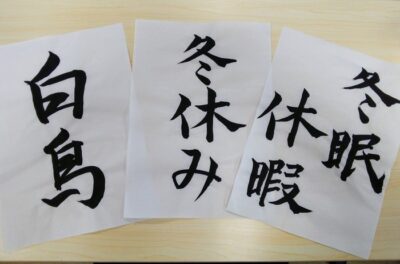 白鳥
冬休み
冬眠
休暇